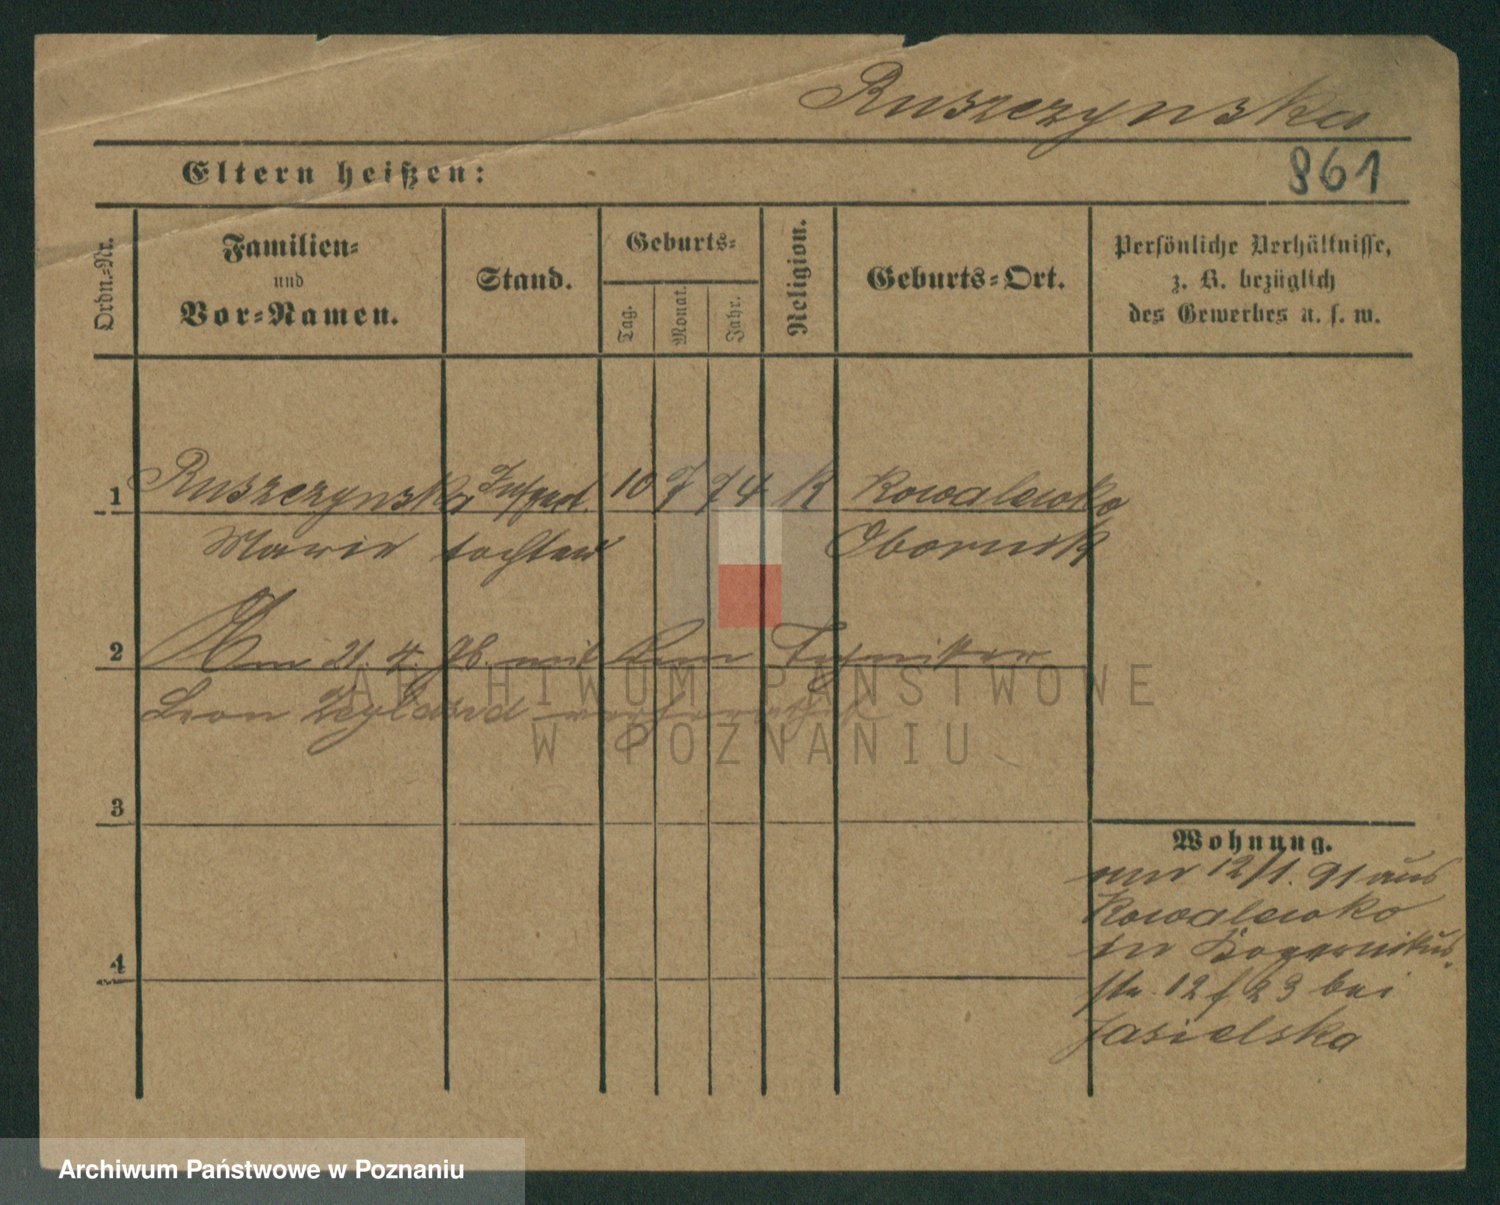 Ruszczynska
Eltern heißen:
861
Ordn.-Nr.
Familien-
und
Vor-Namen.
Stand.
Geburts-
Tag.
Monat.
Jahr.
Religion.
Geburts-Ort.
Persönliche Verhältnisse,
z. B. bezüglich
des Gewerbes u. s. w.
1 Ruszczynska 10 7 74 K Kowalewko
Marie tochter Obornik
2 Am 21. 4. 96. mit dem Techniker
Leon verheirathet
ARCHIWUM PAŃSTWOWE
W POZNANIU
3
4
Wohnung.
am 12/1. 91 aus
Kowalewko
str. 12 / 23 bei
Jasielska
Archiwum Państwowe w Poznaniu